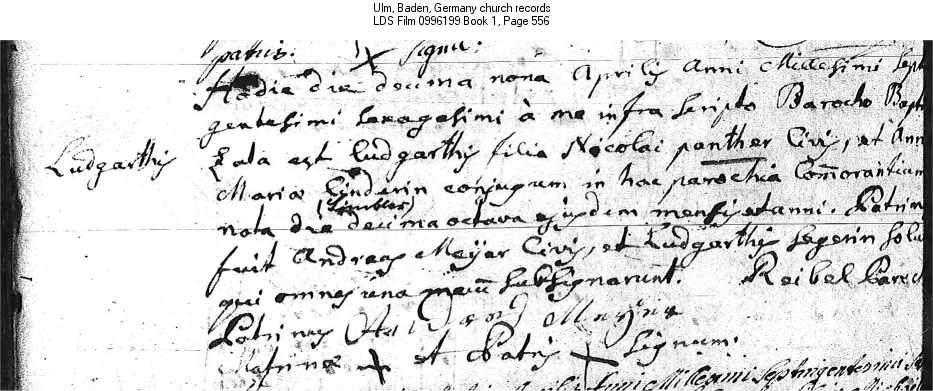 Ulm, Baden, Germany church records
LDS Film 0996199 Book 1, Page 556
patris. X Signu:
Hodie die decima nona Aprilis Anni Milesimi Sept
gentesimi sexagesimi à me infra scripto Parocho Bapti
Ludgarthis
zata est Ludgarthis filia Nicolai panther Civis, et Ann
Mariæ Linderin conjugum in hac parochia Commorantium
(Limbler)
nata die decima octava ejusdem mensis et anni. Patrinu
fuit Andreas Meyer Civis, et Ludgarthis segerin solu
qui omnes una mecum subsignarunt. Reibel Paroch
Patrinus
Matrinæ X et Patris X Signum.
Anni Millesimi septingentesimi